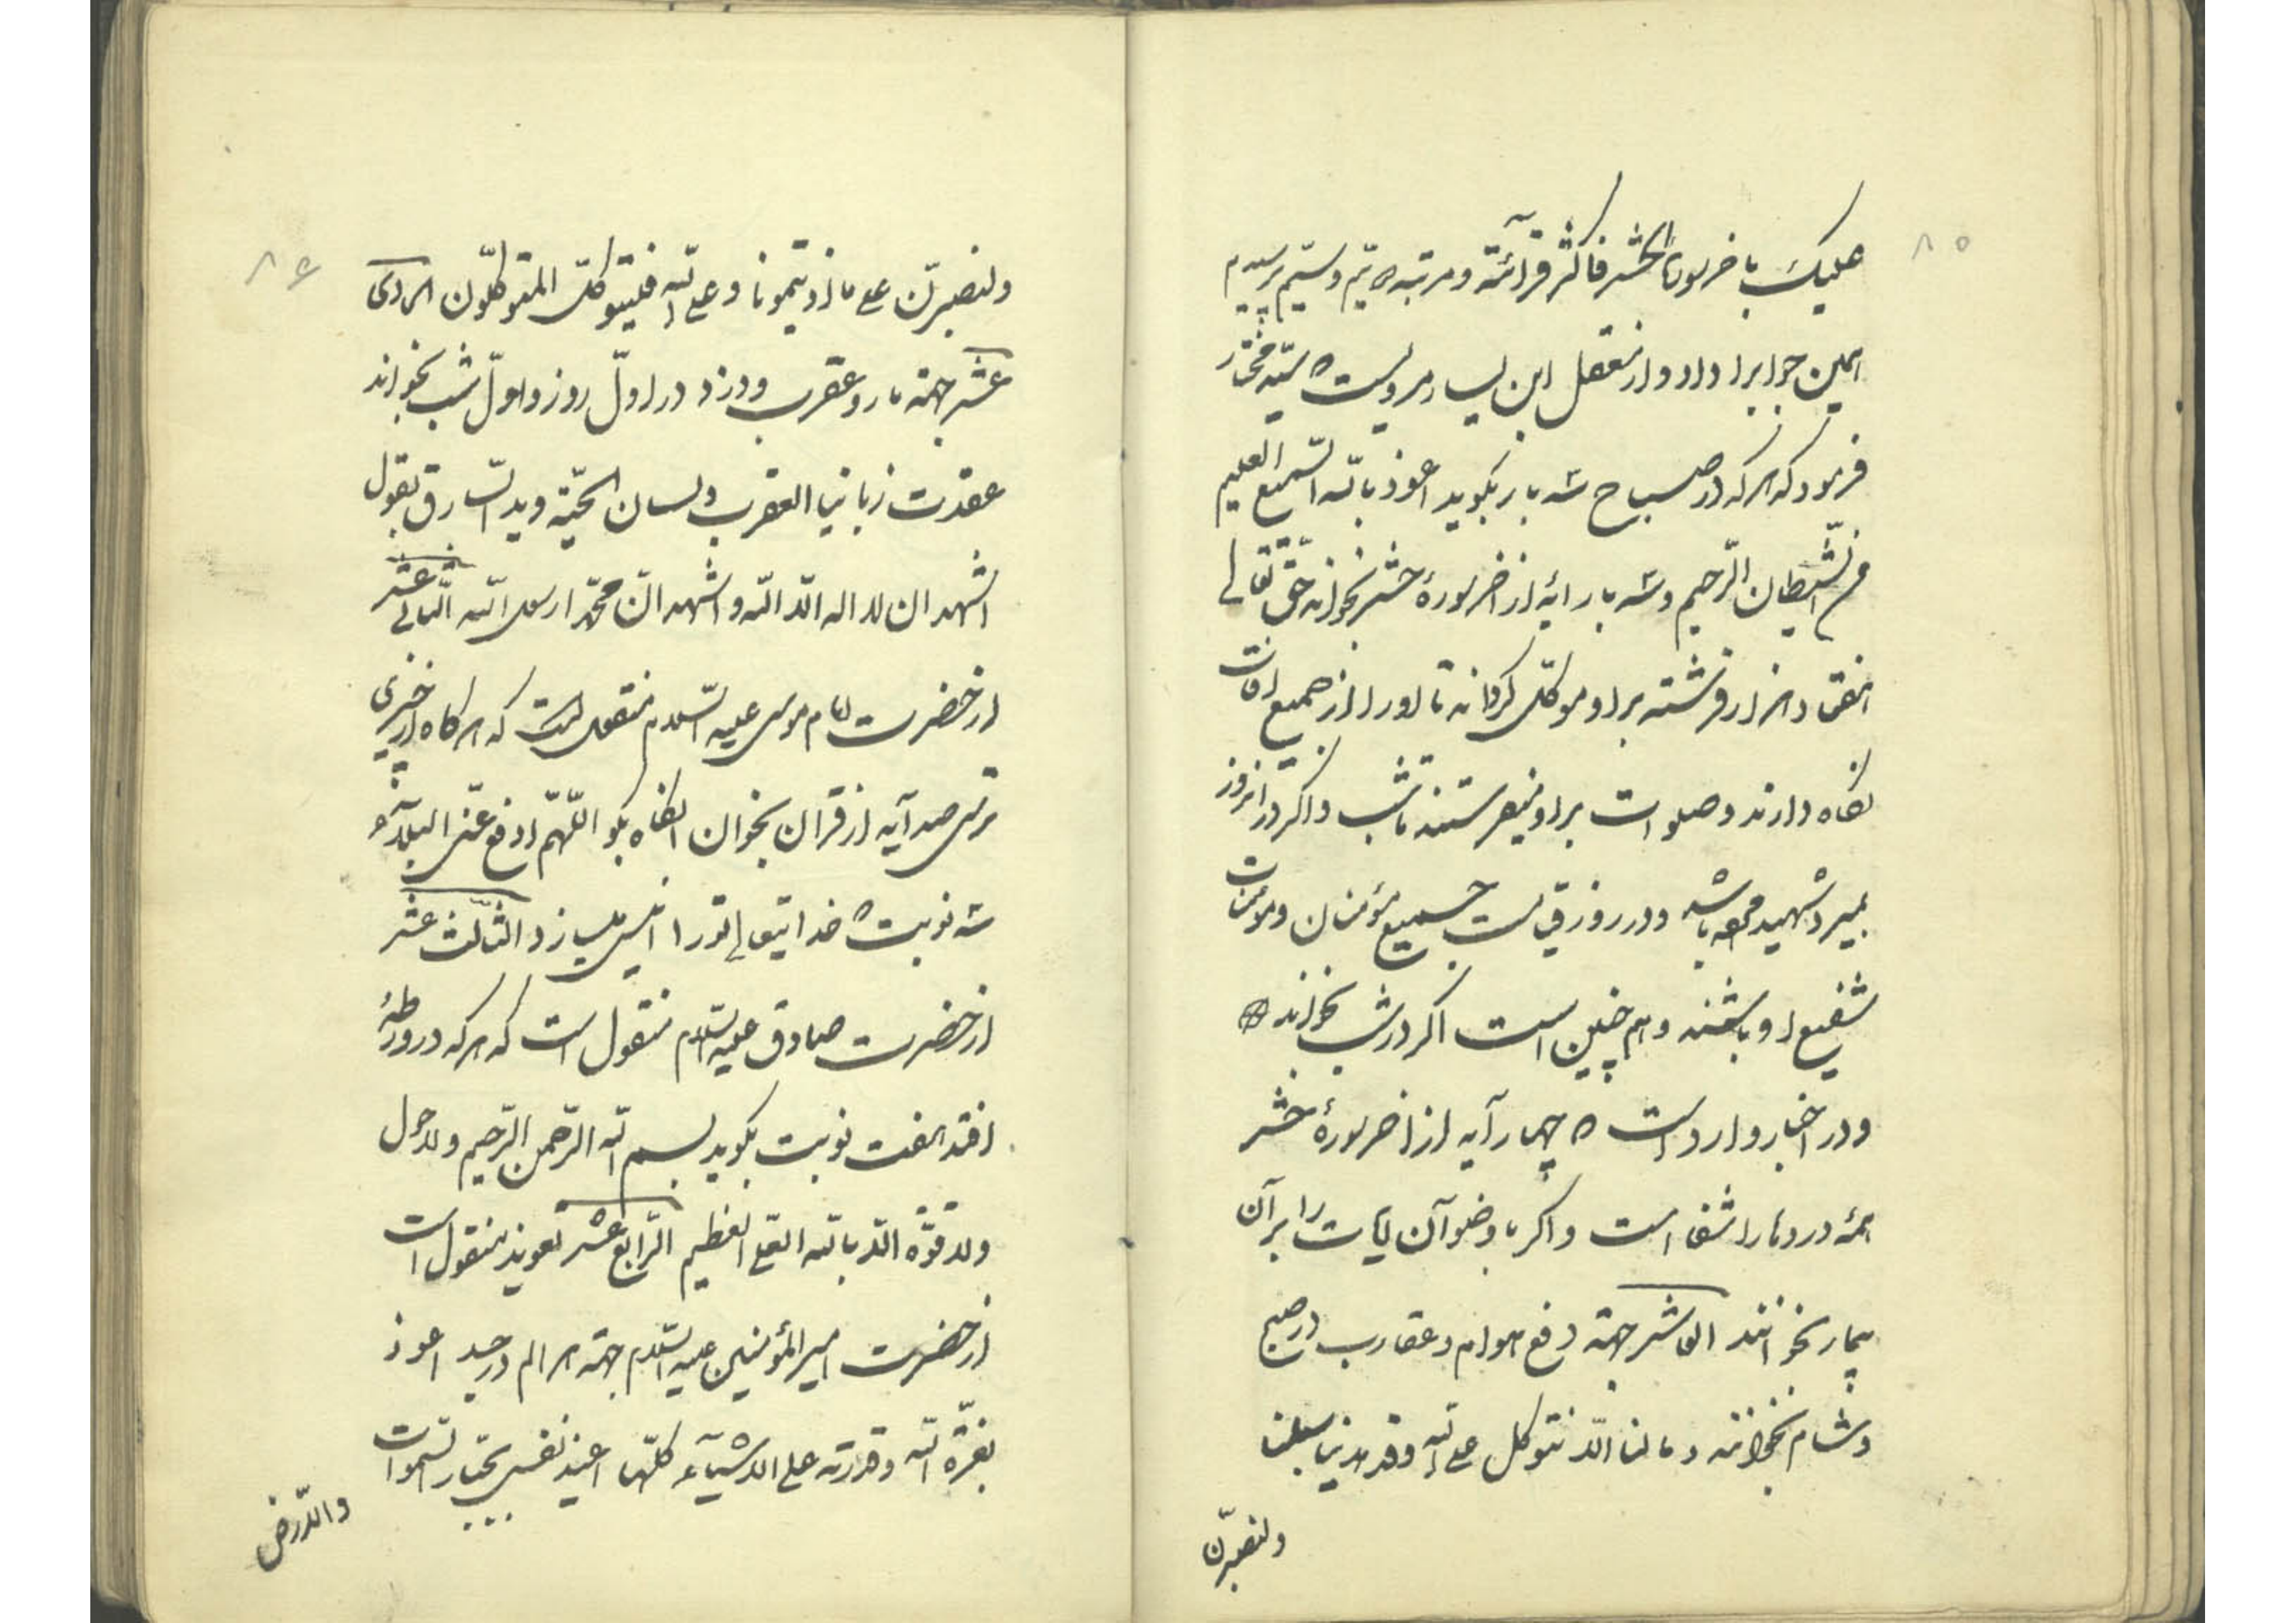 ۸۵
علیک باخر سورة الحشر فاکثر قرائته و مرتبه دیم و سیم پرسیدم
همین جوابرا داد و از معقل ابن یسار مرویست که سید مختار
فرمود که هرکه در صباح سه بار بکوید اعوذ بالله السمیع العلیم
من الشیطان الرجیم و سه بار ایه از اخر سورهٔ حشر بخواند حق تعالی
هفتاد هزار فرشته بر او موکل کرداند تا او را از جمیع افات
نکاه دارند و صلوات بر او میفرستند تا شب و اکر در انروز
بمیرد شهید مرده باشد و در روز قیامت جمیع مؤمنان و مؤمنات
شفیع او باشند و هم چنین است اکر در شب بخواند
و در اخبار وارد است که چهار آیه از اخر سورهٔ حشر
همهٔ دردها را شفا است و اکر با وضو آن ایات را بر آن
بیمار بخوانند العاشر جهة دفع هوام و عقارب در صبح
و شام بخوانند و ما لنا الّا نتوکل علی الله و قد هدینا سبلنا
ولنصبرنّ
۸۶
ولنصبرنّ علی ما اذویتمونا و علی الله فلیتوکل المتوکلون الحادی
عشر جهة مار و عقرب و دزد در اول روز و اول شب بخواند
عقدت زبانیا العقرب و لسان الحیّة و ید السارق بقول
اشهد ان لا اله الّا الله و اشهد انّ محمّدا رسول الله الثانی عشر
از حضرت امام موسی علیه السلام منقول است که هرکاه از چیزی
ترسی صد آیه از قران بخوان انکاه بکو اللّهمّ ادفع عنّی البلآء
سه نوبت که خدایتعالی تو را ایمن میسازد الثالث عشر
از حضرت صادق علیه السلام منقول است که هرکه در ورطهٔ
افتد هفت نوبت بکوید بسم الله الرحمن الرحیم و لا حول
و لا قوّة الّا بالله العلی العظیم الرابع عشر تعویذ منقول است
از حضرت امیر المؤمنین علیه السلام جهة هر الم در جسد اعوذ
بعزّة الله و قدرته علی الاشیآء کلّها اعیذ نفسی بجبّار السموات
والارض